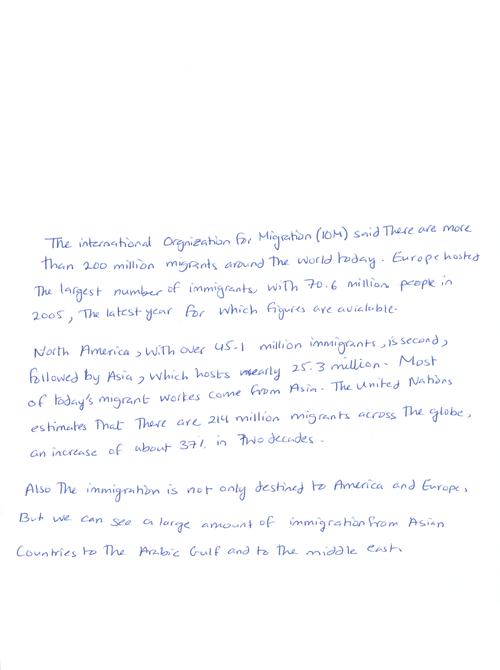 The international Orgnization for Migration (IOM) said There are more
than 200 million migrants around the world today. Europe hosted
The largest number of immigrants with 70.6 million people in
2005, The latest year for which figures are avialable.
North America, with over 45.1 million immigrants, is second,
followed by Asia, which hosts nearly 25.3 million. Most
of today's migrant workes come from Asia. The United Nations
estimates That There are 214 million migrants across The globe,
an increase of about 37% in Two decades.
Also The immigration is not only destined to America and Europe,
But we can see a large amount of immigration from Asian
Countries to The Arabic Gulf and to The middle east.